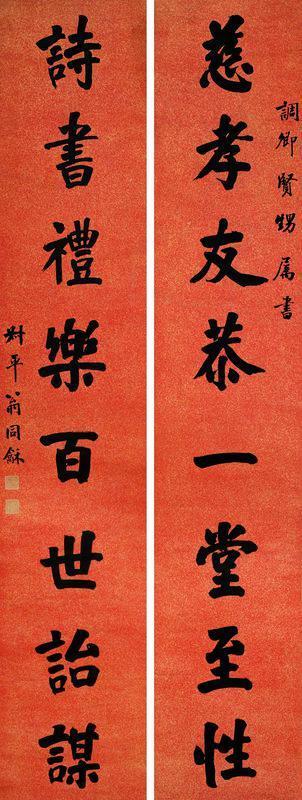 調卿賢甥属書
慈孝友恭一堂至性
詩書禮樂百世詒謀
尗平翁同龢